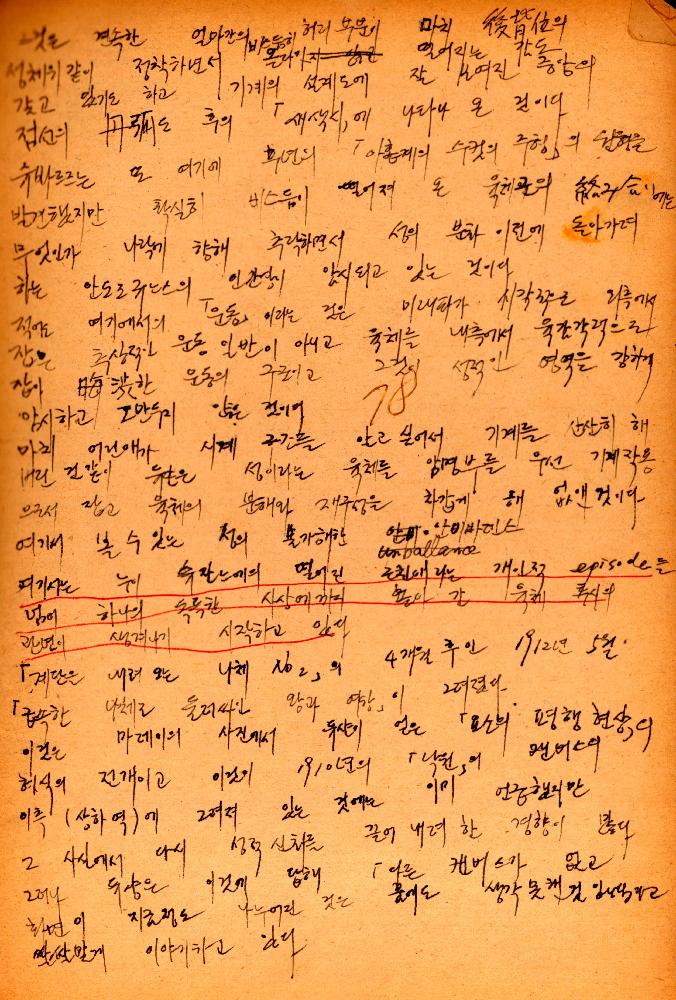 그것은 연속한 얼마간의 비스듬히 허리 부분이 마치 後背位의
성체위 같이 정착하면서 떨어지는 감을
갖고 있기도 하고 기계의 설계도에 잘 그여진 중앙의
접선의 도 후의 「새색시」에 나타나 온 것이다
슈바르츠는 또 여기에 후년의 「아홉개의 수컷의 주형」의 암컷을
발견했지만 확실히 비스듬이 떨어져 온 육체끼리의 에는
무엇인가 나락에 향해 추락하면서 성의 분화 이전에 돌아가려
하는 안도로규노스의 인간성이 암시되고 있는 것이다
적어도 여기에서의 「운동」이라는 것은 미래파가 시각적으로 외측에서
잡은 추상적인 운동 일반이 아니고 육체를 내측에서 육감각적으로
잡아 한 운동의 구조이고 그것이 성적인 영역을 강하게
암시하고 그만두지 않은 것이며
78
마치 어린애가 시계 구조를 알고 싶어서 기계를 산산히 해
버린 것같이 뒤샹은 성이라는 육체를 암명부를 우선 기계작용
으로서 잡고 육체의 분해와 재구성을 차갑게 해 없앤 것이다
여기서 볼 수 있는 성의 불가해한 암비바란스
여기서는 누이 슈잔느에의 떨어진 근친애라는 개인적 episode를
넘어 하나의 독특한 사상에까지 높아 간 육체 특의의
관념이 생겨나기 시작하고 있다
「계단을 내려오는 나체 No 2」의 4개월 후인 1912년 5월.
「급속한 나체로 둘러싸인 왕과 여왕」이 그려졌다
이것은 마레이의 사진에서 뒤샹이 얻은 「요소의 평행 현상」의
형식의 전개이고 이것이 1910년의 「낙원」의 캔버스의
이측 (상하 역)에 그려져 있는 것에는 이미 언급했지만
그 사실에서 다시 성적 신화를 끌어 내려 한 경향이 많다
그러나 뒤샹은 이것에 답해 「다른 캔버스가 없고
화면이 지금정도 나누어진 것은 꿈에도 생각 못했던 것 입니다라고
쌀쌀맞게 이야기하고 있다